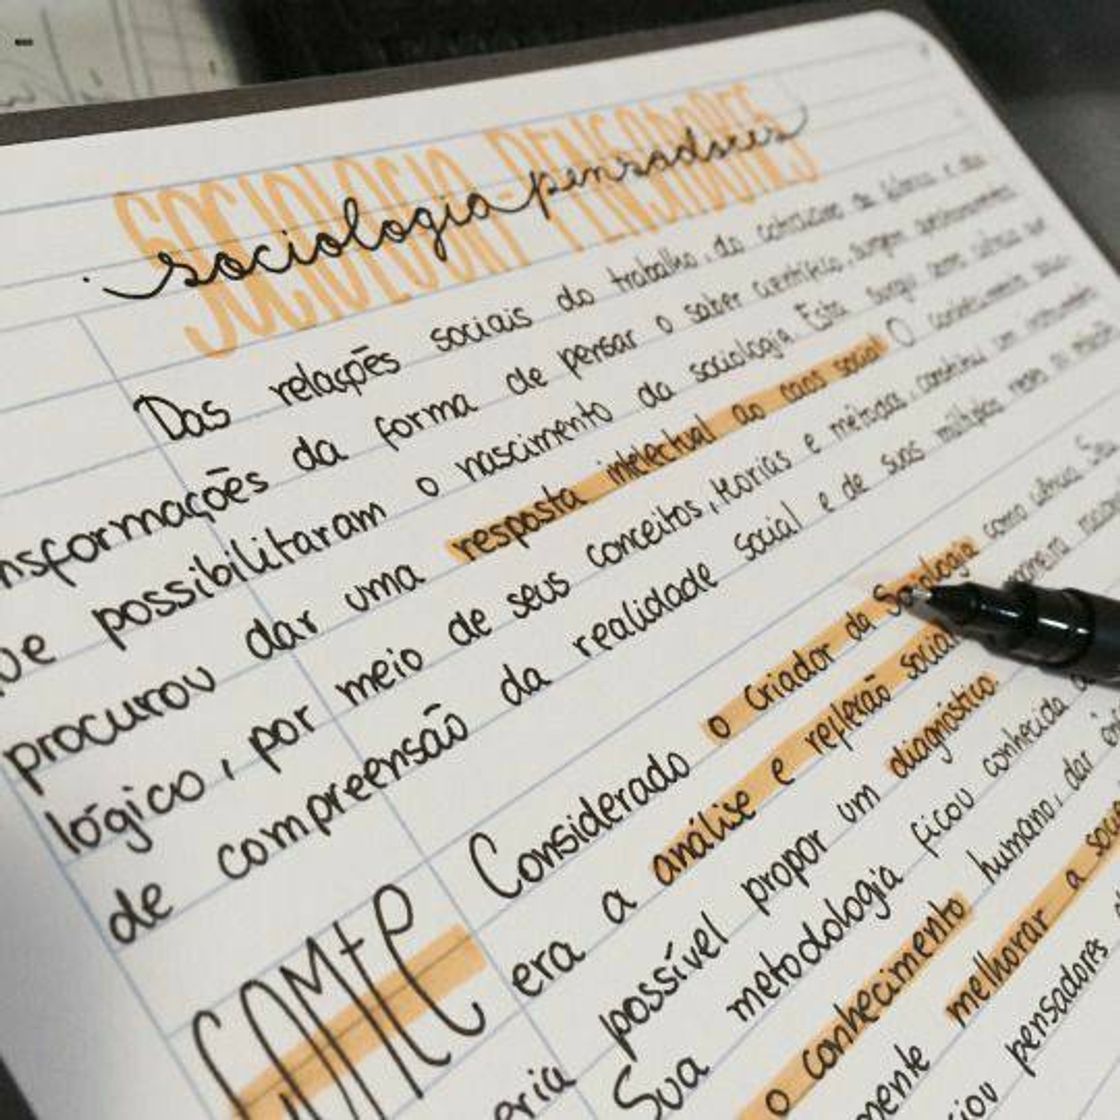 SOCIOLOGIA PENSADORES
sociologia pensadores
Das relações sociais do trabalho, do
nsformações da forma de pensar o saber científico, surgem
ue possibilitaram o nascimento da sociologia. Esta surgiu como
procurou dar uma resposta intelectual ao caos social. O conhecimento
lógico, por meio de seus conceitos, teorias e métodos, constitui um instrumento
de compreensão da realidade social e de suas múltiplas redes
Considerado o criador da Sociologia como ciência. Seu
COMTE era a análise e reflexão social
eria possível propor um diagnóstico.
Sua metodologia ficou conhecida
o conhecimento humano, dar
mente melhorar a
iou pensadores